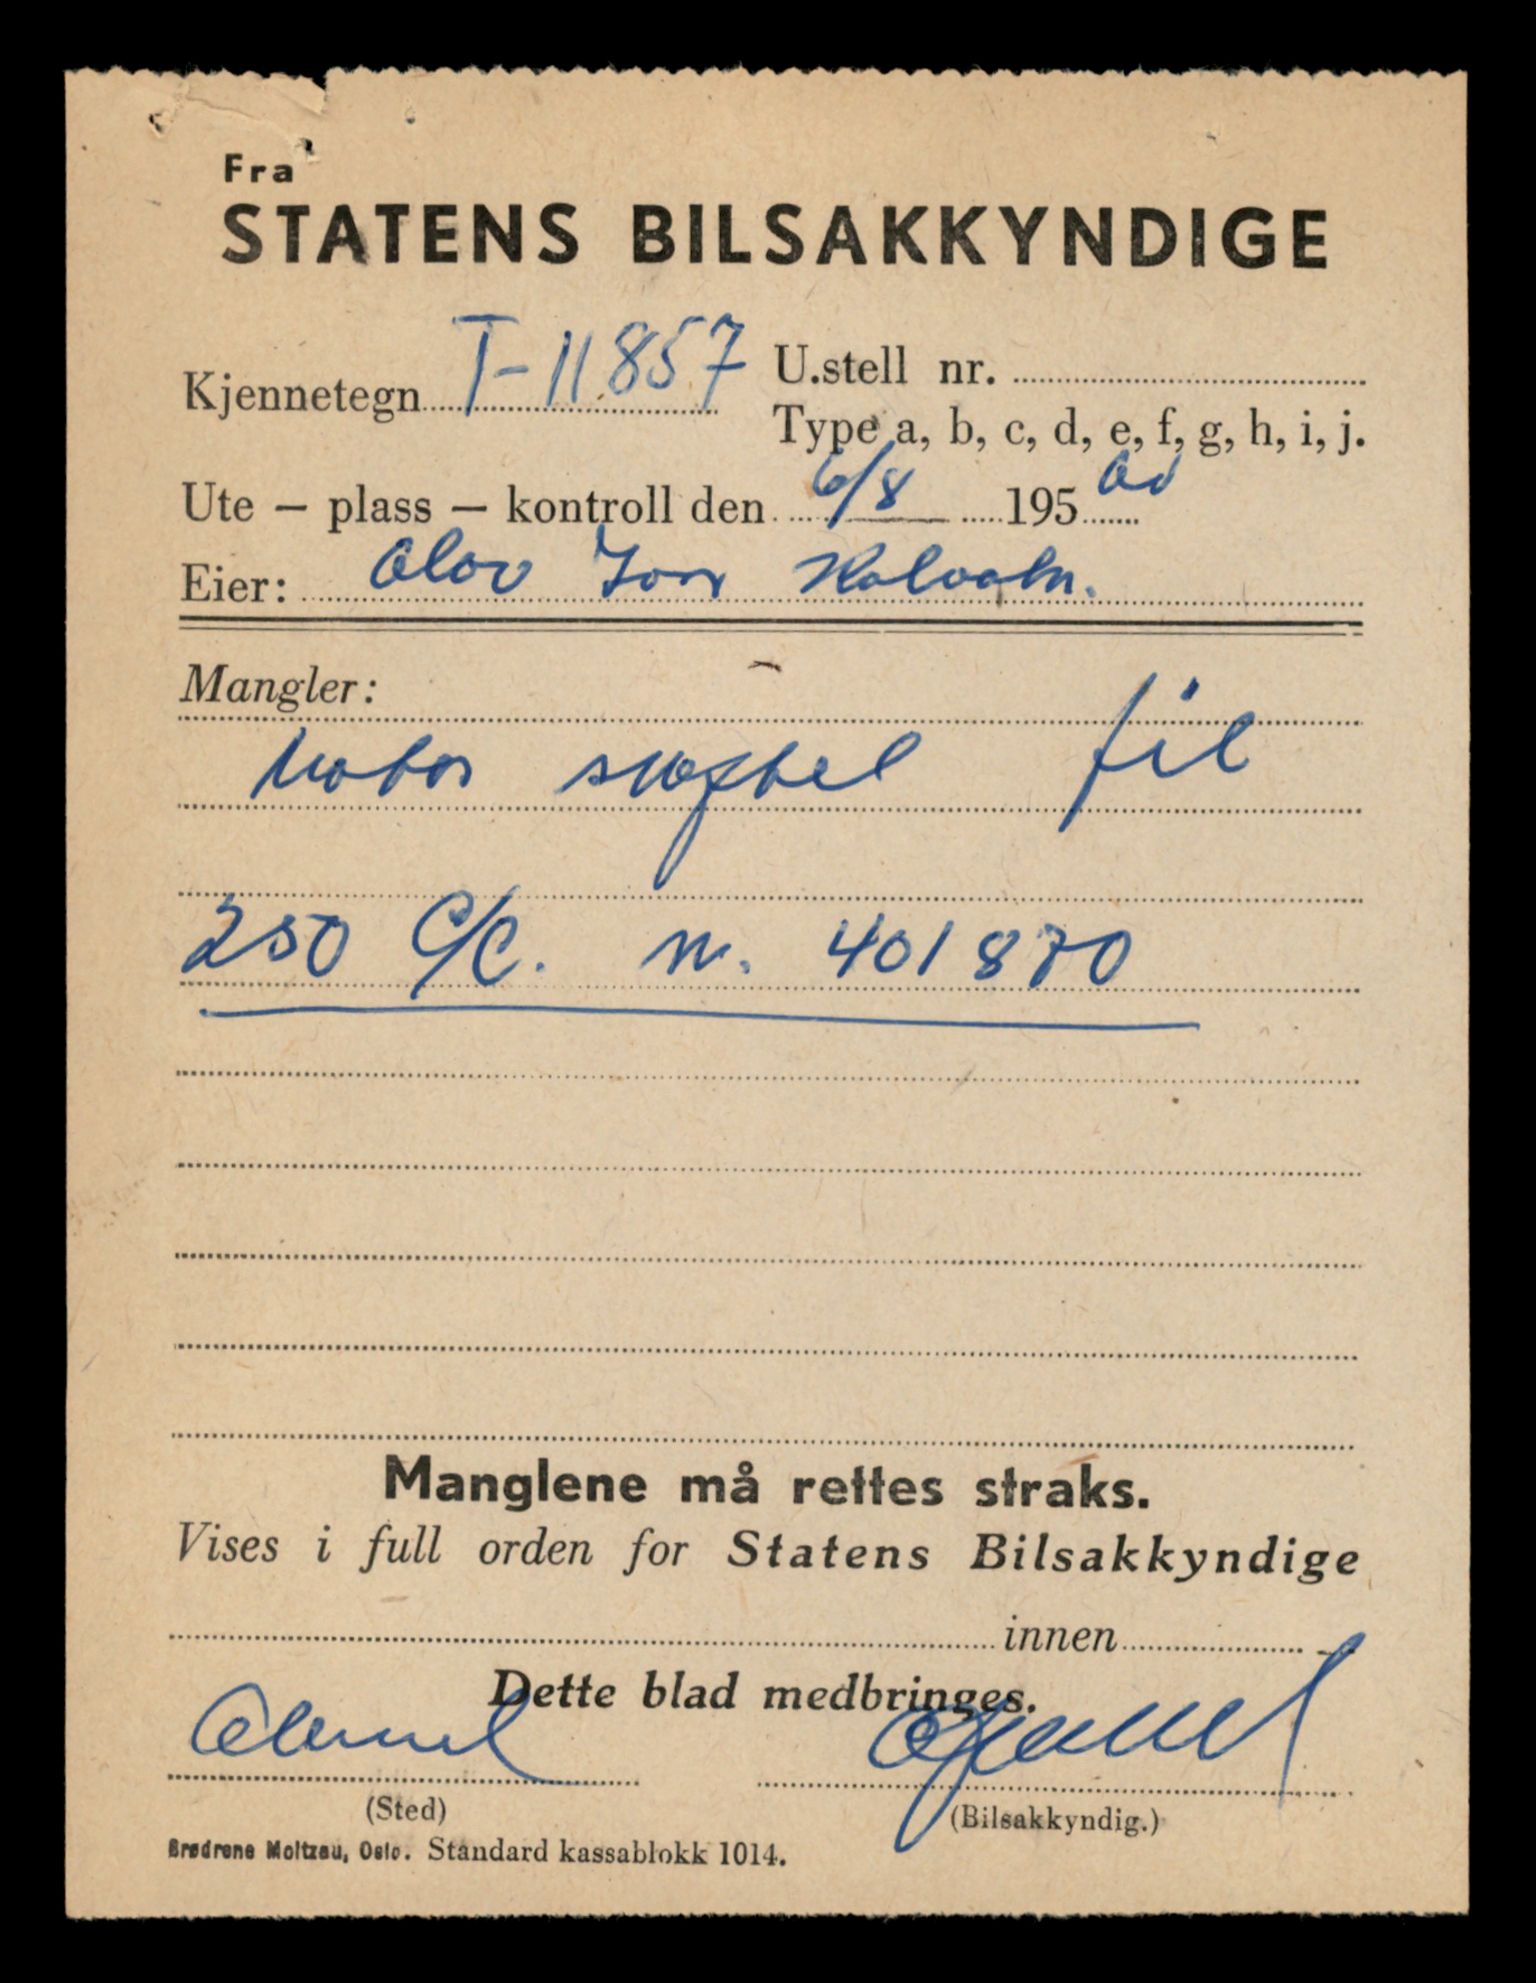 Fra
STATENS BILSAKKYNDIGE
Kjennetegn T-11857 U.stell nr.
Type a, b, c, d, e, f, g, h, i, j.
Ute – plass – kontroll den 6/8 195 60
Eier: Olov Ivar
Mangler:
Motor skiftet til
250 C/C. nr. 401870
Manglene må rettes straks.
Vises i full orden for Statens Bilsakkyndige
innen
Dette blad medbringes.
(Sted) (Bilsakkyndig.)
Brødrene Moltzau, Oslo. Standard kassablokk 1014.